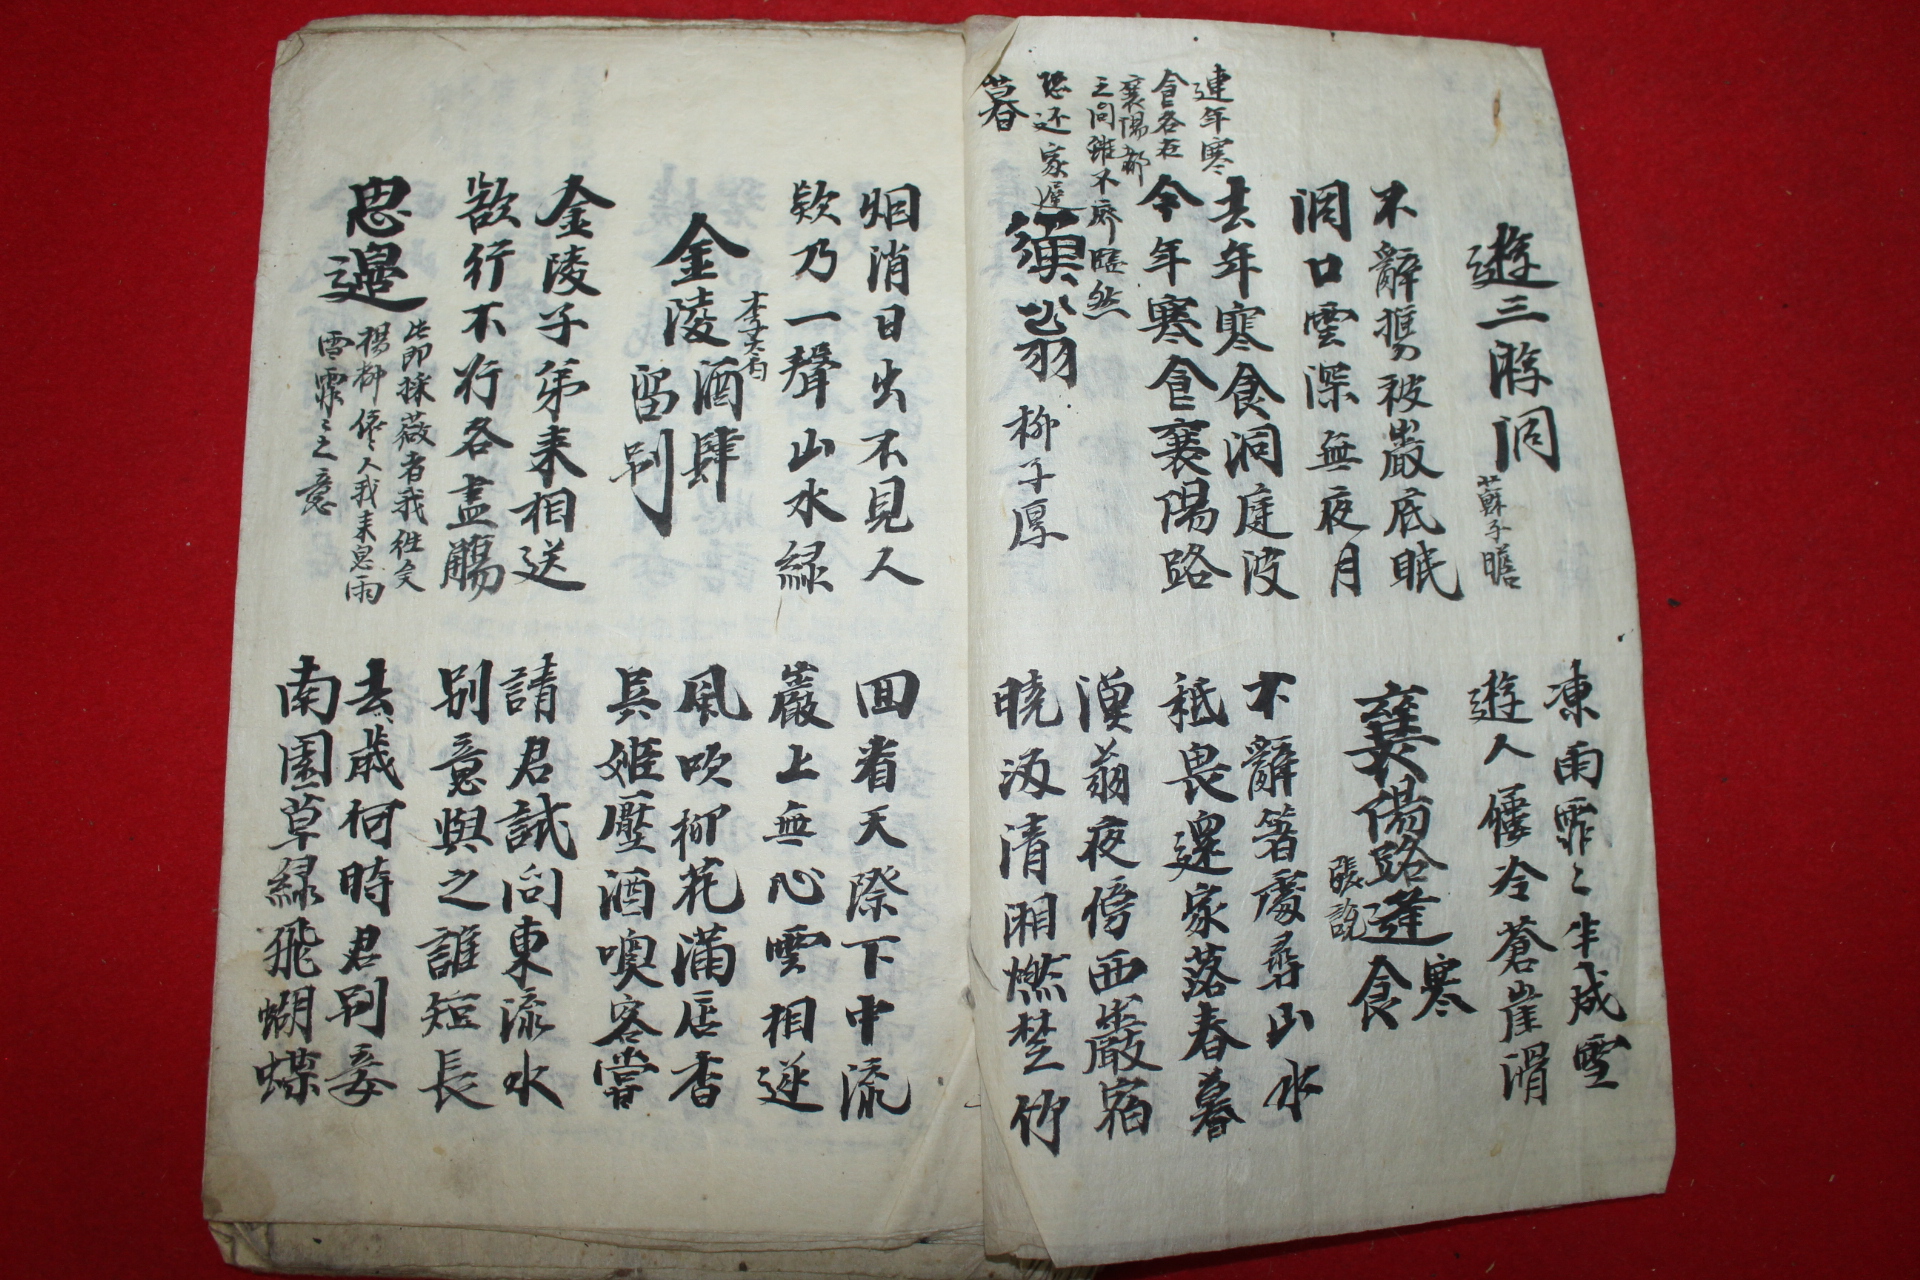 遊三游洞
蘇子瞻
凍雨霏〻半成雪
遊人屨冷蒼崖滑
不辭携被巖底眠
洞口雲深無夜月
襄陽路逢寒食
張說
去年寒食洞庭波
今年寒食襄陽路
不辭著處尋山水
秪畏還家落春暮
連年寒
食各在
襄陽都
之間雖不
恐还家遲
暮
漁翁
柳子厚
漁翁夜傍西巖宿
曉汲清湘燃楚竹
烟消日出不見人
欸乃一聲山水綠
回看天際下中流
巖上無心雲相逐
金陵酒肆留別
李太白
風吹柳花滿店香
吳姬壓酒喚客嘗
金陵子弟来相送
欲行不行各盡觴
請君試問東流水
別意與之誰短長
思邊
此即採薇者我徃矣
楊柳依人我来思雨
雪霏〻之意
去歲何時君別妾
南園草綠飛蝴蝶